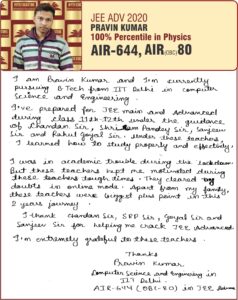 JEE ADV 2020
PRAVIN KUMAR
100% Percentile in Physics
AIR-644, AIR(OBC)80
I am Pravin Kumar and I'm currently
pursuing B Tech from IIT Delhi in computer
Science and Engineering.
I've prepared for JEE main and Advanced
during class 11th-12th under the guidance
of Chandan Sir, Pandey Sir, Sanjeev
Sir and Rahul Goyal Sir. Under these teachers,
I learned how to study properly and effectively.
I was in academic trouble during the lockdown.
But these teachers kept me motivated during
these tough times. They cleared my
doubts in online mode. Apart from my family,
these teachers were biggest plus point in this
2 years journey.
I thank Chandan Sir, SRP Sir, Goyal Sir and
Sanjeev Sir for helping me crack JEE Advanced
I'm extremely grateful to these teachers.
Thanks
Pravin Kumar
Computer Science and Engineering in
IIT Delhi.
AIR-644 (OBC-80) in JEE